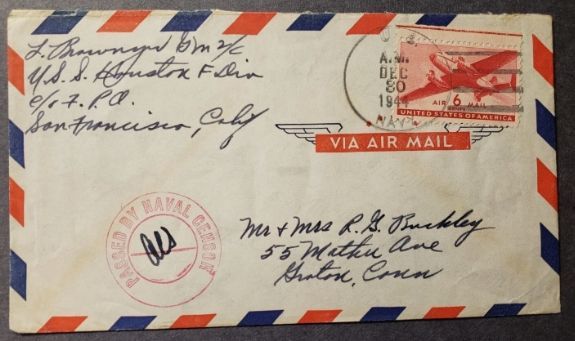 L. Brownyer GM 2/c
U.S.S. Houston F Div
c/o F.P.O.
San Francisco, Calif
A.M.
DEC
30
194
NAVY
AIR 6 MAIL
UNITED STATES OF AMERICA
VIA AIR MAIL
PASSED BY NAVAL CENSOR
Mr & Mrs R. G. Buckley
55 Mather Ave
Groton, Conn